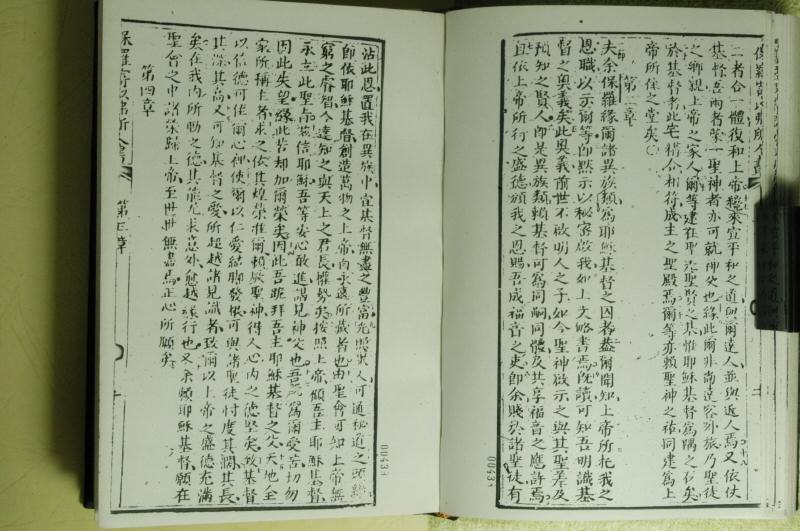 二者合一體復和上帝
來宣平和之道與爾達人並與近人焉又依伏
基督吾兩者蒙一聖神者亦可就神父也緣此爾非尚遠客外旅乃聖徒
之鄉親上帝之家人爾等建在聖先聖賢之基惟耶穌基督為隅之石矣
於基督者此宅搆合相符成主之聖殿焉爾等亦賴聖神之祐同建為上
帝所住之堂矣
第三章
夫余保羅緣爾諸異族類為耶穌基督之囚者蓋爾聞知上帝所托我之
恩職以示爾等即默示以秘密啟我如上文略書焉既讀可知吾明識基
督之奧義矣此奧義前世不啟明人之子如今聖神啟示之與其聖差及
預知之賢人即是異族類賴基督可為同嗣同體及共享福音之應許焉
且依上帝所行之盛德頒我之恩賜吾成福音之吏即余賤於諸聖徒有
沾此恩置我在異族中宣基督無盡之豐富光照眾人可通秘道之
即依耶穌基督創造萬物之上帝向永遠所藏者也由聖會可知上帝無
窮之睿智今達知之與天上之君長權勢焉按照上帝賴吾主耶穌基督
永立此聖旨
信耶穌吾等安心敢進謁見神父也吾為爾受苦切勿
因此失望緣此苦却加爾榮矣因此吾跪拜吾主耶穌基督之父天地全
家所稱主者求之依其煌榮推爾賴厥聖神得人心內之德堅矣致基督
以信德可住爾心裡使爾以仁愛結聯發根可與諸聖徒忖度其濶其長
其深其高又可知基督之愛所超越諸見識者致爾以上帝之盛德充滿
矣在我內所動之德其能尤求意外愈越
行也又余賴耶穌基督願在
聖會之中諸榮歸上帝至世世無盡焉正心所願矣
第四章
第三章
00431